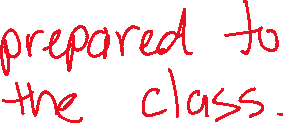 prepared to
the class.